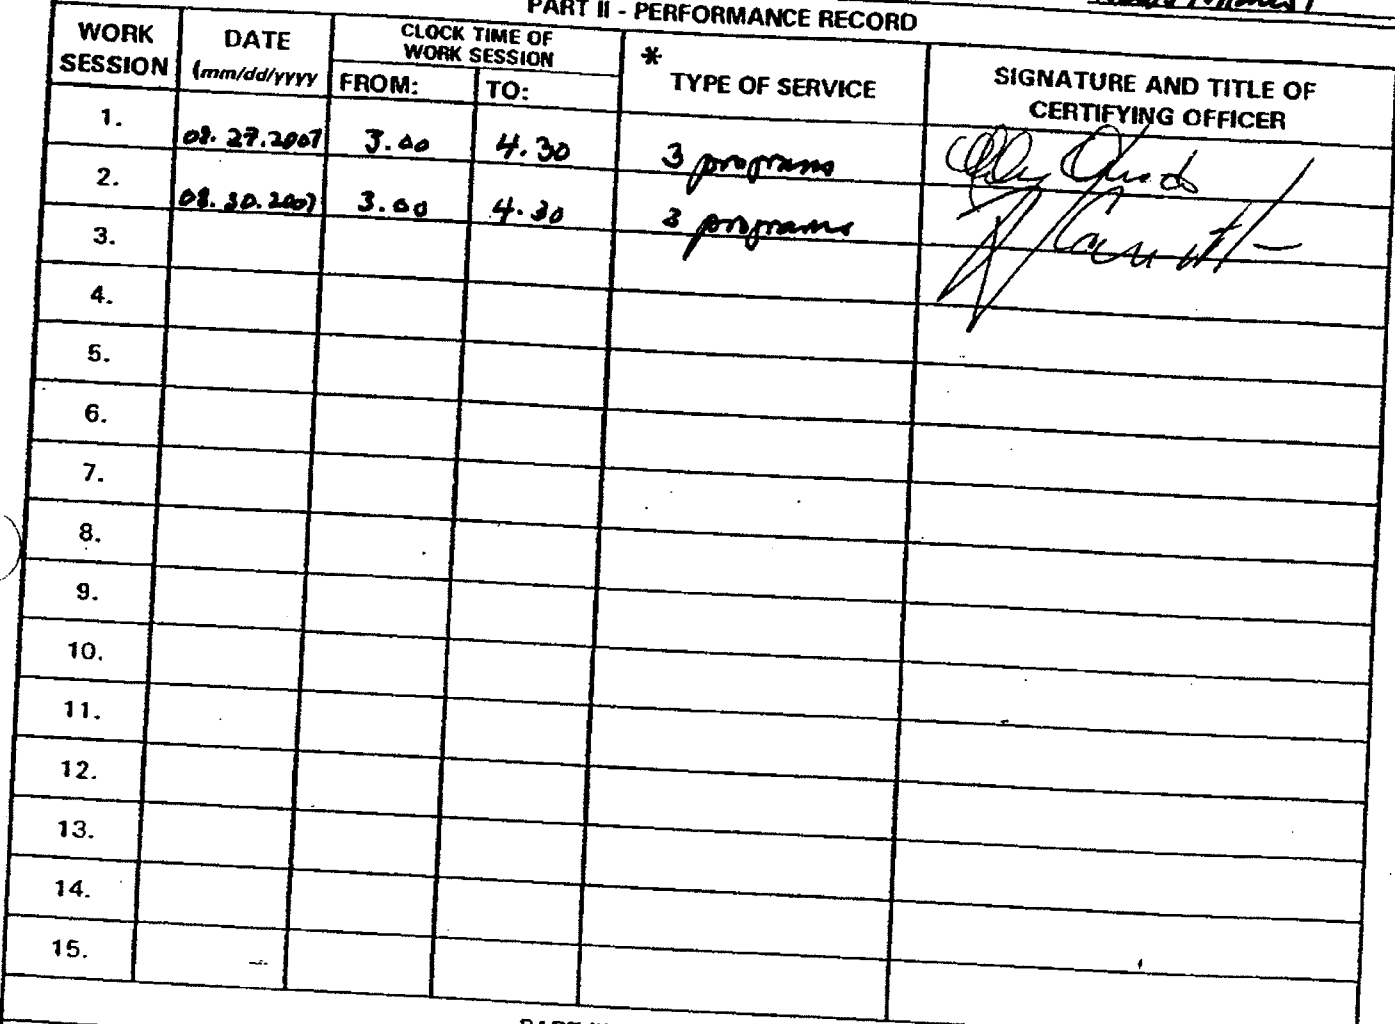 PART II - PERFORMANCE RECORD
WORK SESSION
DATE (mm/dd/yyyy
CLOCK TIME OF WORK SESSION
FROM:
TO:
* TYPE OF SERVICE
SIGNATURE AND TITLE OF CERTIFYING OFFICER
1. 08.27.2007 3.00 4.30 3 programs
2. 08.30.2007 3.00 4.30 3 programs
3.
4.
5.
6.
7.
8.
9.
10.
11.
12.
13.
14.
15.